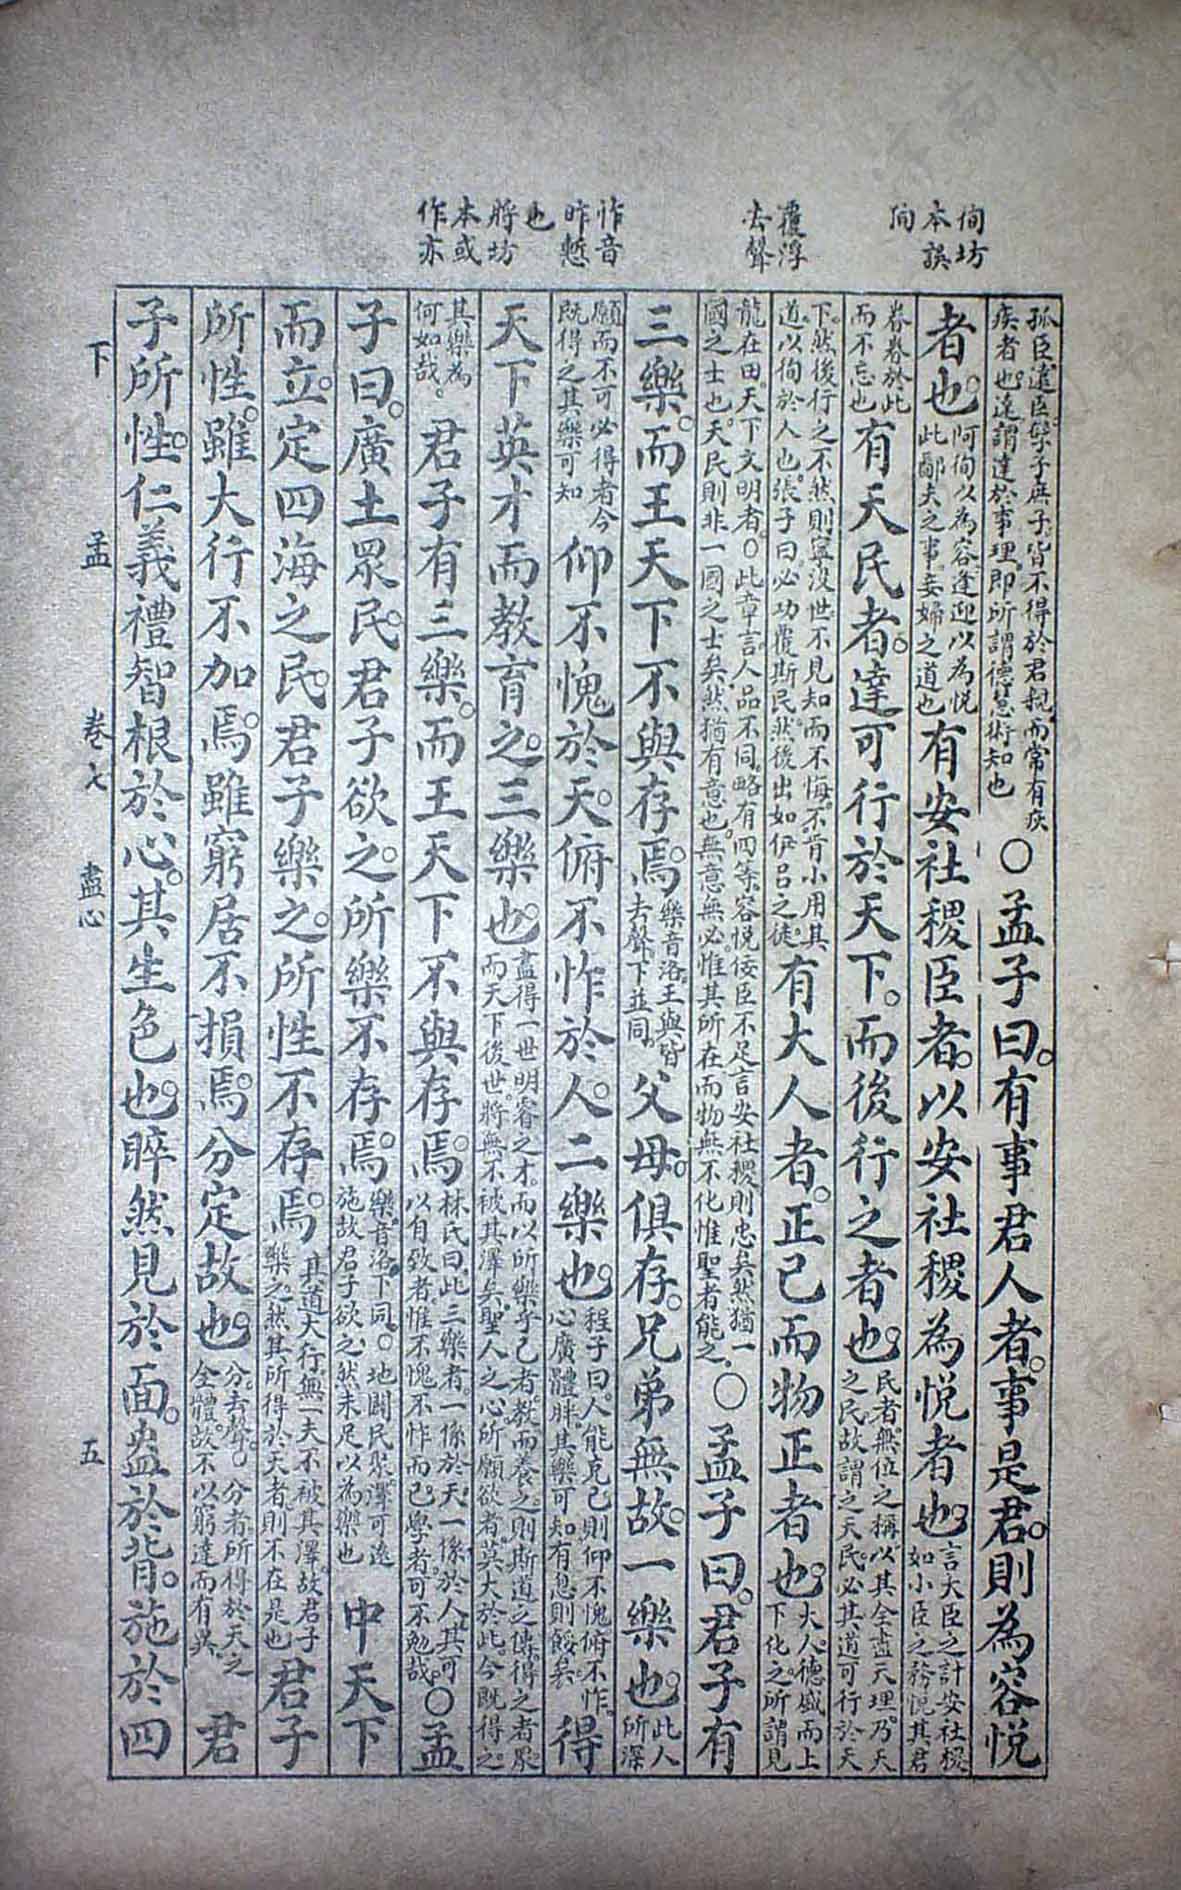 侚坊
本誤
徇
覆浮
去聲
怍音
昨慙
也
將坊
本或
作亦
孤臣遠臣孽子庶子皆不得於君親而常有疢疾者也達謂達於事理即所謂德慧術知也○孟子曰。有事君人者。事是君。則為容悅
者也。阿侚以為容逢迎以為悅此鄙夫之事妾婦之道也有安社稷臣者。以安社稷為悅者也。言大臣之計安社稷如小臣之務悅其君
眷眷於此而不忘也有天民者。達可行於天下。而後行之者也。民者無位之稱以其全盡天理乃天之民故謂之天民必其道可行於天
下。然後行之不然則寧沒世不見知而不悔。不肯小用其道以徇於人也。張子曰。必功覆斯民然後出如伊呂之徒。有大人者。正己而物正者也。大人。德盛而上下化之。所謂見
龍在田。天下文明者。○此章言人品不同。略有四等。容悅佞臣不足言安社稷則忠矣然猶一國之士也。天民則非一國之士矣。然猶有意也。無意無必。惟其所在而物無不化惟聖者能之。○孟子曰。君子有
三樂。而王天下不與存焉。樂音洛。王與皆去聲下並同。父母俱存。兄弟無故。一樂也。此人所深
願而不可必得者今既得之其樂可知仰不愧於天。俯不怍於人。二樂也。程子曰。人能克己則仰不愧俯不怍。心廣體胖其樂可知有息則餒矣得
天下英才而教育之。三樂也。盡得一世明睿之才。而以所樂乎己者。教而養之。則斯道之傳得之者眾。而天下後世。將無不被其澤矣。聖人之心所願欲者。莫大於此。今既得之。
其樂為何如哉。君子有三樂。而王天下不與存焉。林氏曰。此三樂者。一係於天。一係於人。其可以自致者。惟不愧不怍而已。學者可不勉哉。○孟
子曰。廣土眾民。君子欲之。所樂不存焉。樂音洛下同。○地闢民聚。澤可遠施故君子欲之然未足以為樂也中天下
而立。定四海之民。君子樂之。所性不存焉。其道大行。無一夫不被其澤。故君子樂之。然其所得於天者。則不在是也君子
所性。雖大行不加焉。雖窮居不損焉。分定故也。分。去聲。○分者。所得於天之全體。故不以窮達而有異。君
子所性。仁義禮智根於心。其生色也。睟然見於面。盎於背。施於四
下 孟 卷七 盡心 五